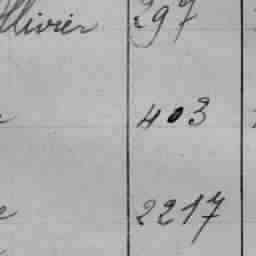 llivier 297
403
2217